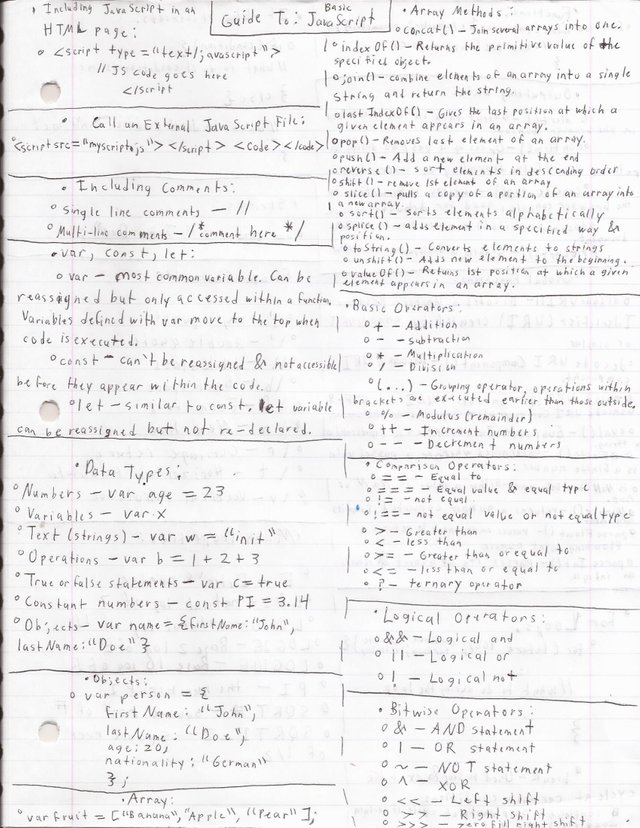 Basic
Guide To: JavaScript
• Including JavaScript in an
HTML page:
○ <script type="text/javascript">
// JS code goes here
</script
• Call an External JavaScript File:
<script src="myscript.js"></script> <code></code>
• Including Comments:
○ Single line comments - //
○ Multi-line comments - /* comment here */
• var, const, let:
○ var - most common variable. Can be
reassigned but only accessed within a function.
Variables defined with var move to the top when
code is executed.
○ const - can't be reassigned & not accessible
before they appear within the code.
○ let - similar to const, let variable
can be reassigned but not re-declared.
• Data Types:
○ Numbers - var age = 23
○ Variables - var x
○ Text (strings) - var w = "init"
○ Operations - var b = 1 + 2 + 3
○ True or false statements - var c = true
○ Constant numbers - const PI = 3.14
○ Objects - var name = {firstName: "John",
lastName: "Doe"}
• Objects:
○ var person = {
firstName: "John",
lastName: "Doe",
age: 20,
nationality: "German"
};
• Array:
○ var fruit = ["Banana", "Apple", "Pear"];
• Array Methods:
○ concat() - Join several arrays into one.
○ indexOf() - Returns the primitive value of the
specified object.
○ join() - combine elements of an array into a single
string and return the string.
○ last IndexOf() - Gives the last position at which a
given element appears in an array.
○ pop() - Removes last element of an array.
○ push() - Add a new element at the end
○ reverse() - sort elements in descending order
○ shift() - remove 1st element of an array
○ slice() - pulls a copy of a portion of an array into
a new array.
○ sort() - Sorts elements alphabetically
○ splice() - adds element in a specified way &
position.
○ toString() - Converts elements to strings
○ unshift() - Adds new element to the beginning.
○ valueOf() - Returns 1st position at which a given
element appears in an array.
• Basic Operators:
○ + - Addition
○ - - subtraction
○ * - Multiplication
○ / - Division
○ (...) - Grouping operator, operations within
brackets are executed earlier than those outside.
○ % - Modulus (remainder)
○ ++ - Increment numbers
○ -- - Decrement numbers
• Comparison Operators:
○ == - Equal to
○ === - Equal value & equal type
○ != - not equal
○ !== - not equal value or not equal type
○ > - Greater than
○ < - less than
○ >= - Greater than or equal to
○ <= - less than or equal to
○ ? - ternary operator
• Logical Operators:
○ && - Logical and
○ || - Logical or
○ ! - Logical not
• Bitwise Operators:
○ & - AND statement
○ | - OR statement
○ ~ - NOT statement
○ ^ - XOR
○ << - Left shift
○ >> - Right shift
○ >>> - zero fill right shift